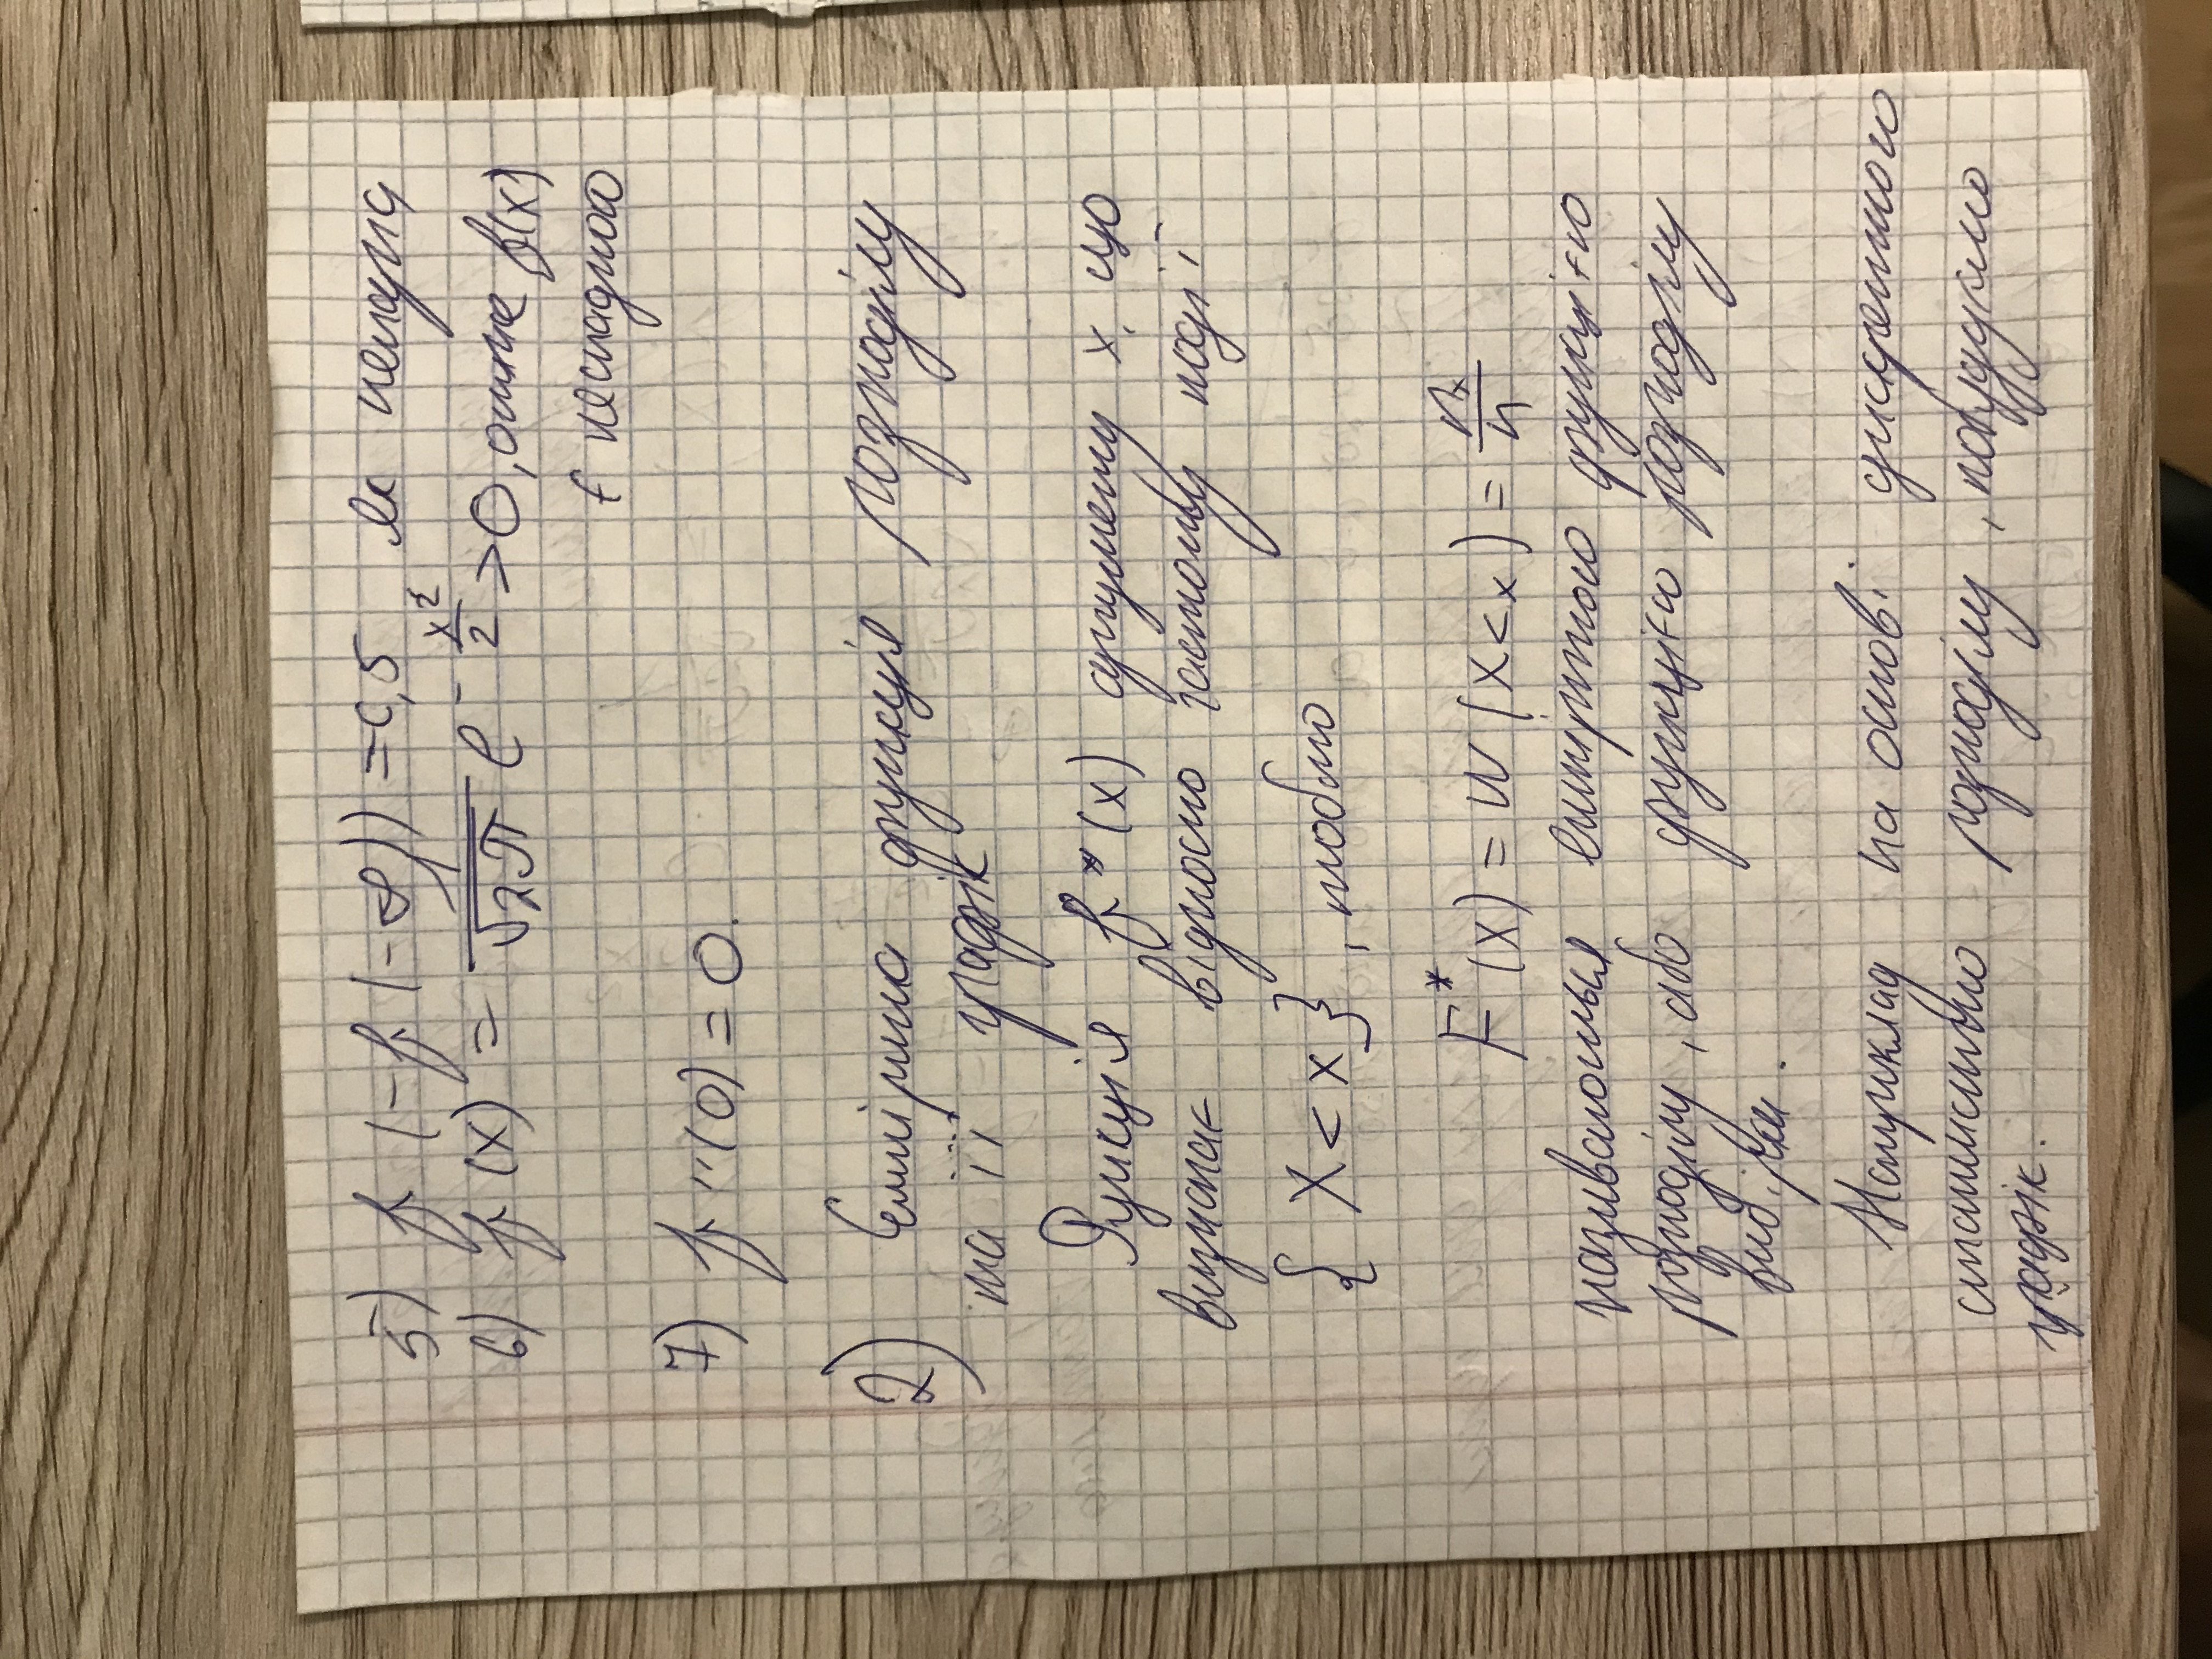 5) f (-f(-∞)) = 0,5, як непарна
6) f (x) = 1/√2π e^(-x²/2) > 0, отже f(x)
є неспадною
7) f''(0) = 0.
2) Емпірична функція розподілу
та її графік
Функція f*(x) аргументу x, що
визначає відносно частоту події
{ X < x }, тобто
F*(x) = W (X < x) = nₓ/n
називаються емпіричною функцією
розподілу, або функцією розподілу
вибірки.
Наприклад на основі дискретного
статистично розподілу, побудуємо
графік.